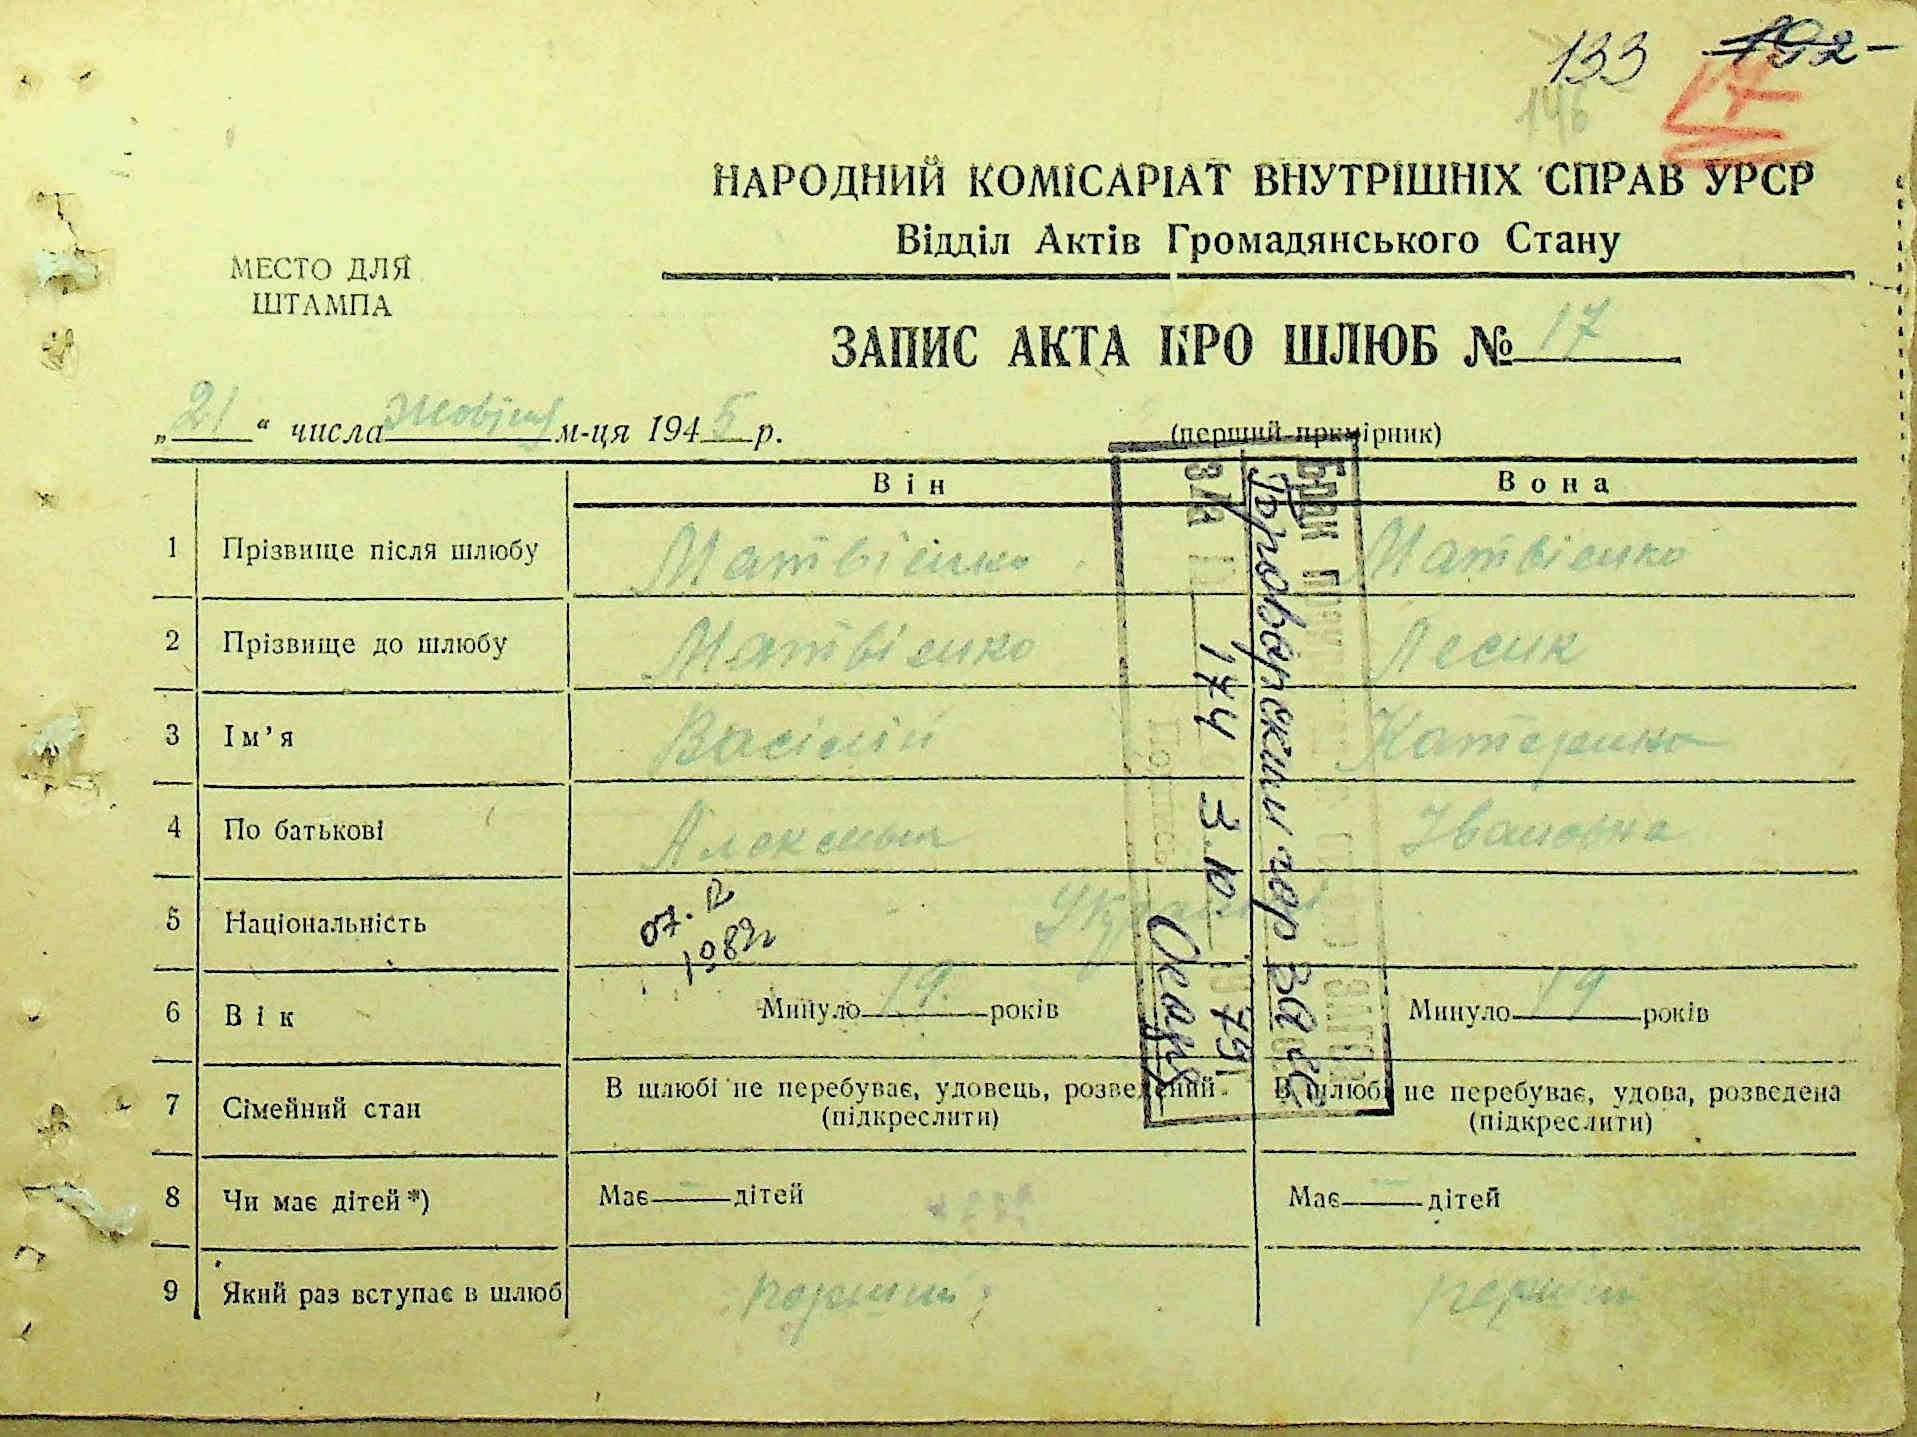 133 192-
146
17
НАРОДНИЙ КОМІСАРІАТ ВНУТРІШНІХ СПРАВ УРСР
Відділ Актів Громадянського Стану
МЕСТО ДЛЯ
ШТАМПА
ЗАПИС АКТА ПРО ШЛЮБ № 17
„21“ числа м-ця 1945 р.
(перший примірник)
Він Вона
1 Прізвище після шлюбу Матвієнко Матвієнко
2 Прізвище до шлюбу Матвієнко Лесик
3 Ім’я Василій Катерина
4 По батькові Івановна
5 Національність
07. 12
1983г
6 Вік Минуло 19 років Минуло 19 років
7 Сімейний стан В шлюбі не перебуває, удовець, розведений В шлюбі не перебуває, удова, розведена
(підкреслити) (підкреслити)
8 Чи має дітей*) Має — дітей Має — дітей
9 Який раз вступає в шлюб перший
174 3.10. 1979